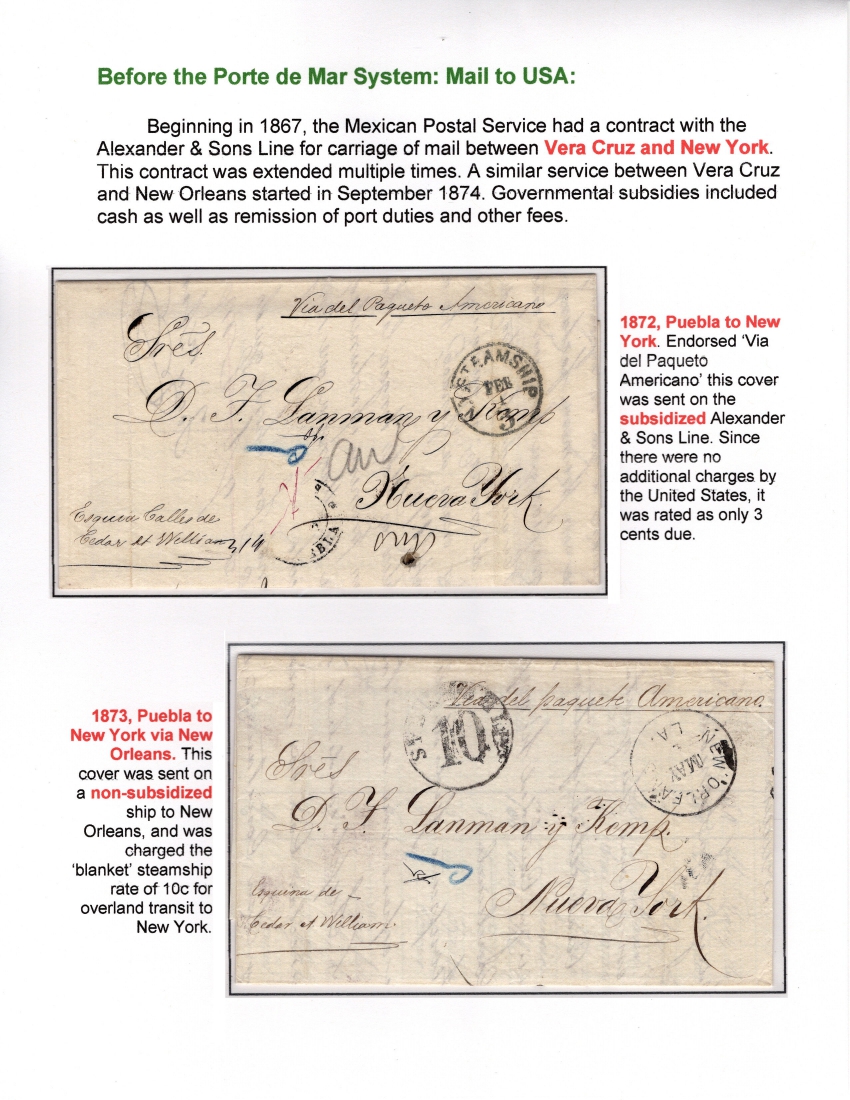 Before the Porte de Mar System: Mail to USA:
Beginning in 1867, the Mexican Postal Service had a contract with the
Alexander & Sons Line for carriage of mail between Vera Cruz and New York.
This contract was extended multiple times. A similar service between Vera Cruz
and New Orleans started in September 1874. Governmental subsidies included
cash as well as remission of port duties and other fees.
Via del Paqueto Americano
Srēs.
D. F. Lanman y Kemp
Nueva York.
Esquia Calles de
Cedar et William
N.Y. STEAMSHIP
FEB
3
1872, Puebla to New
York. Endorsed ‘Via
del Paqueto
Americano’ this cover
was sent on the
subsidized Alexander
& Sons Line. Since
there were no
additional charges by
the United States, it
was rated as only 3
cents due.
1873, Puebla to
New York via New
Orleans. This
cover was sent on
a non-subsidized
ship to New
Orleans, and was
charged the
‘blanket’ steamship
rate of 10c for
overland transit to
New York.
Via del paquete Americano.
10
NEW ORLEANS
LA.
MAY
Srēs
D. F. Lanman y Kemp.
Nueva York.
Esquina de
Cedar et William.